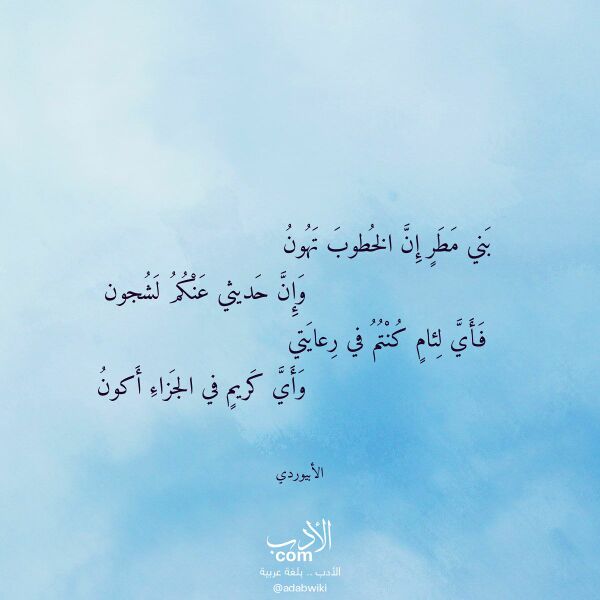 بَني مَطَرٍ إِنَّ الخُطوبَ تَهُونُ
وَإِنَّ حَديثي عَنْكُمُ لَشُجون
فَأَيَّ لِئامٍ كُنْتُمُ في رِعايَتي
وَأَيَّ كَريمٍ في الجَزاءِ أَكونُ
الأبيوردي
الأدب
com
الأدب .. بلغة عربية
@adabwiki